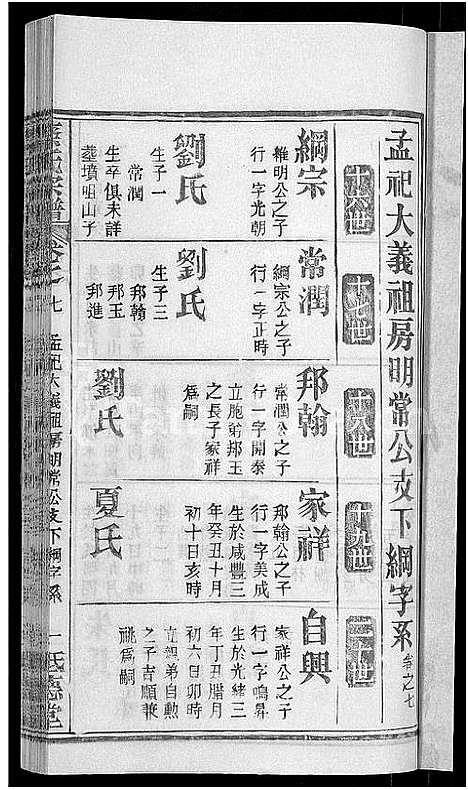 孟祀大義祖房明常公支下綱字系 卷之七
十六世
綱宗
維明公之子
行一字光朝
劉氏
生子一
常潤
生卒俱未詳
墓墳咀山子
十七世
常潤
綱宗公之子
行一字正時
劉氏
生子三
邦翰
邦玉
邦進
十八世
邦翰
常潤公之子
行一字開泰
立胞弟邦玉
之長子家祥
為嗣
劉氏
十九世
家祥
邦翰公之子
行一字美成
生於咸豐三
年癸丑十月
初十日亥時
夏氏
二十世
自興
家祥公之子
行一字鳴昇
生於光緒三
年丁丑腊月
初六日卯時
立親弟自勲
之子吉順兼
祧為嗣
宗譜 卷之七 孟祀大義祖房明常公支下綱字系 一